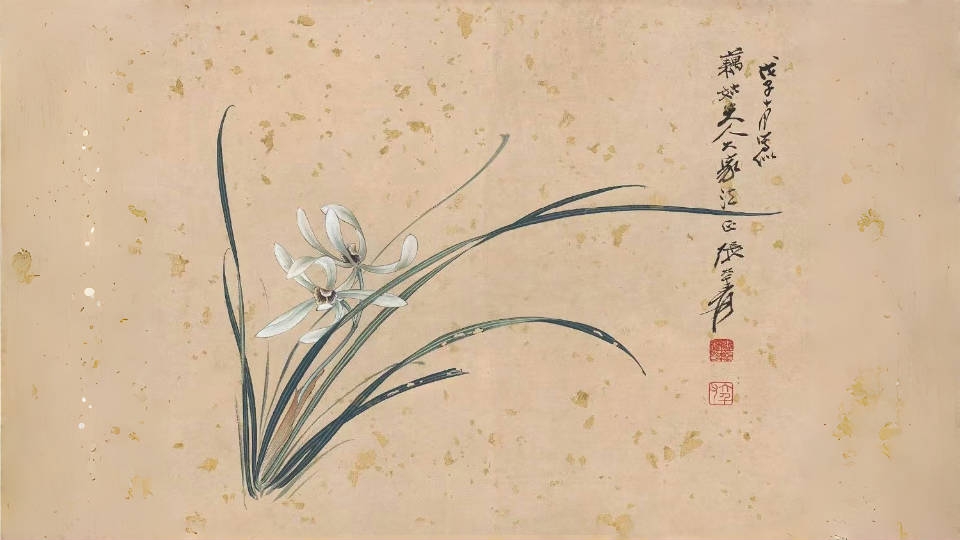 戊子十月寫似
藕如夫人大家法正 張爰